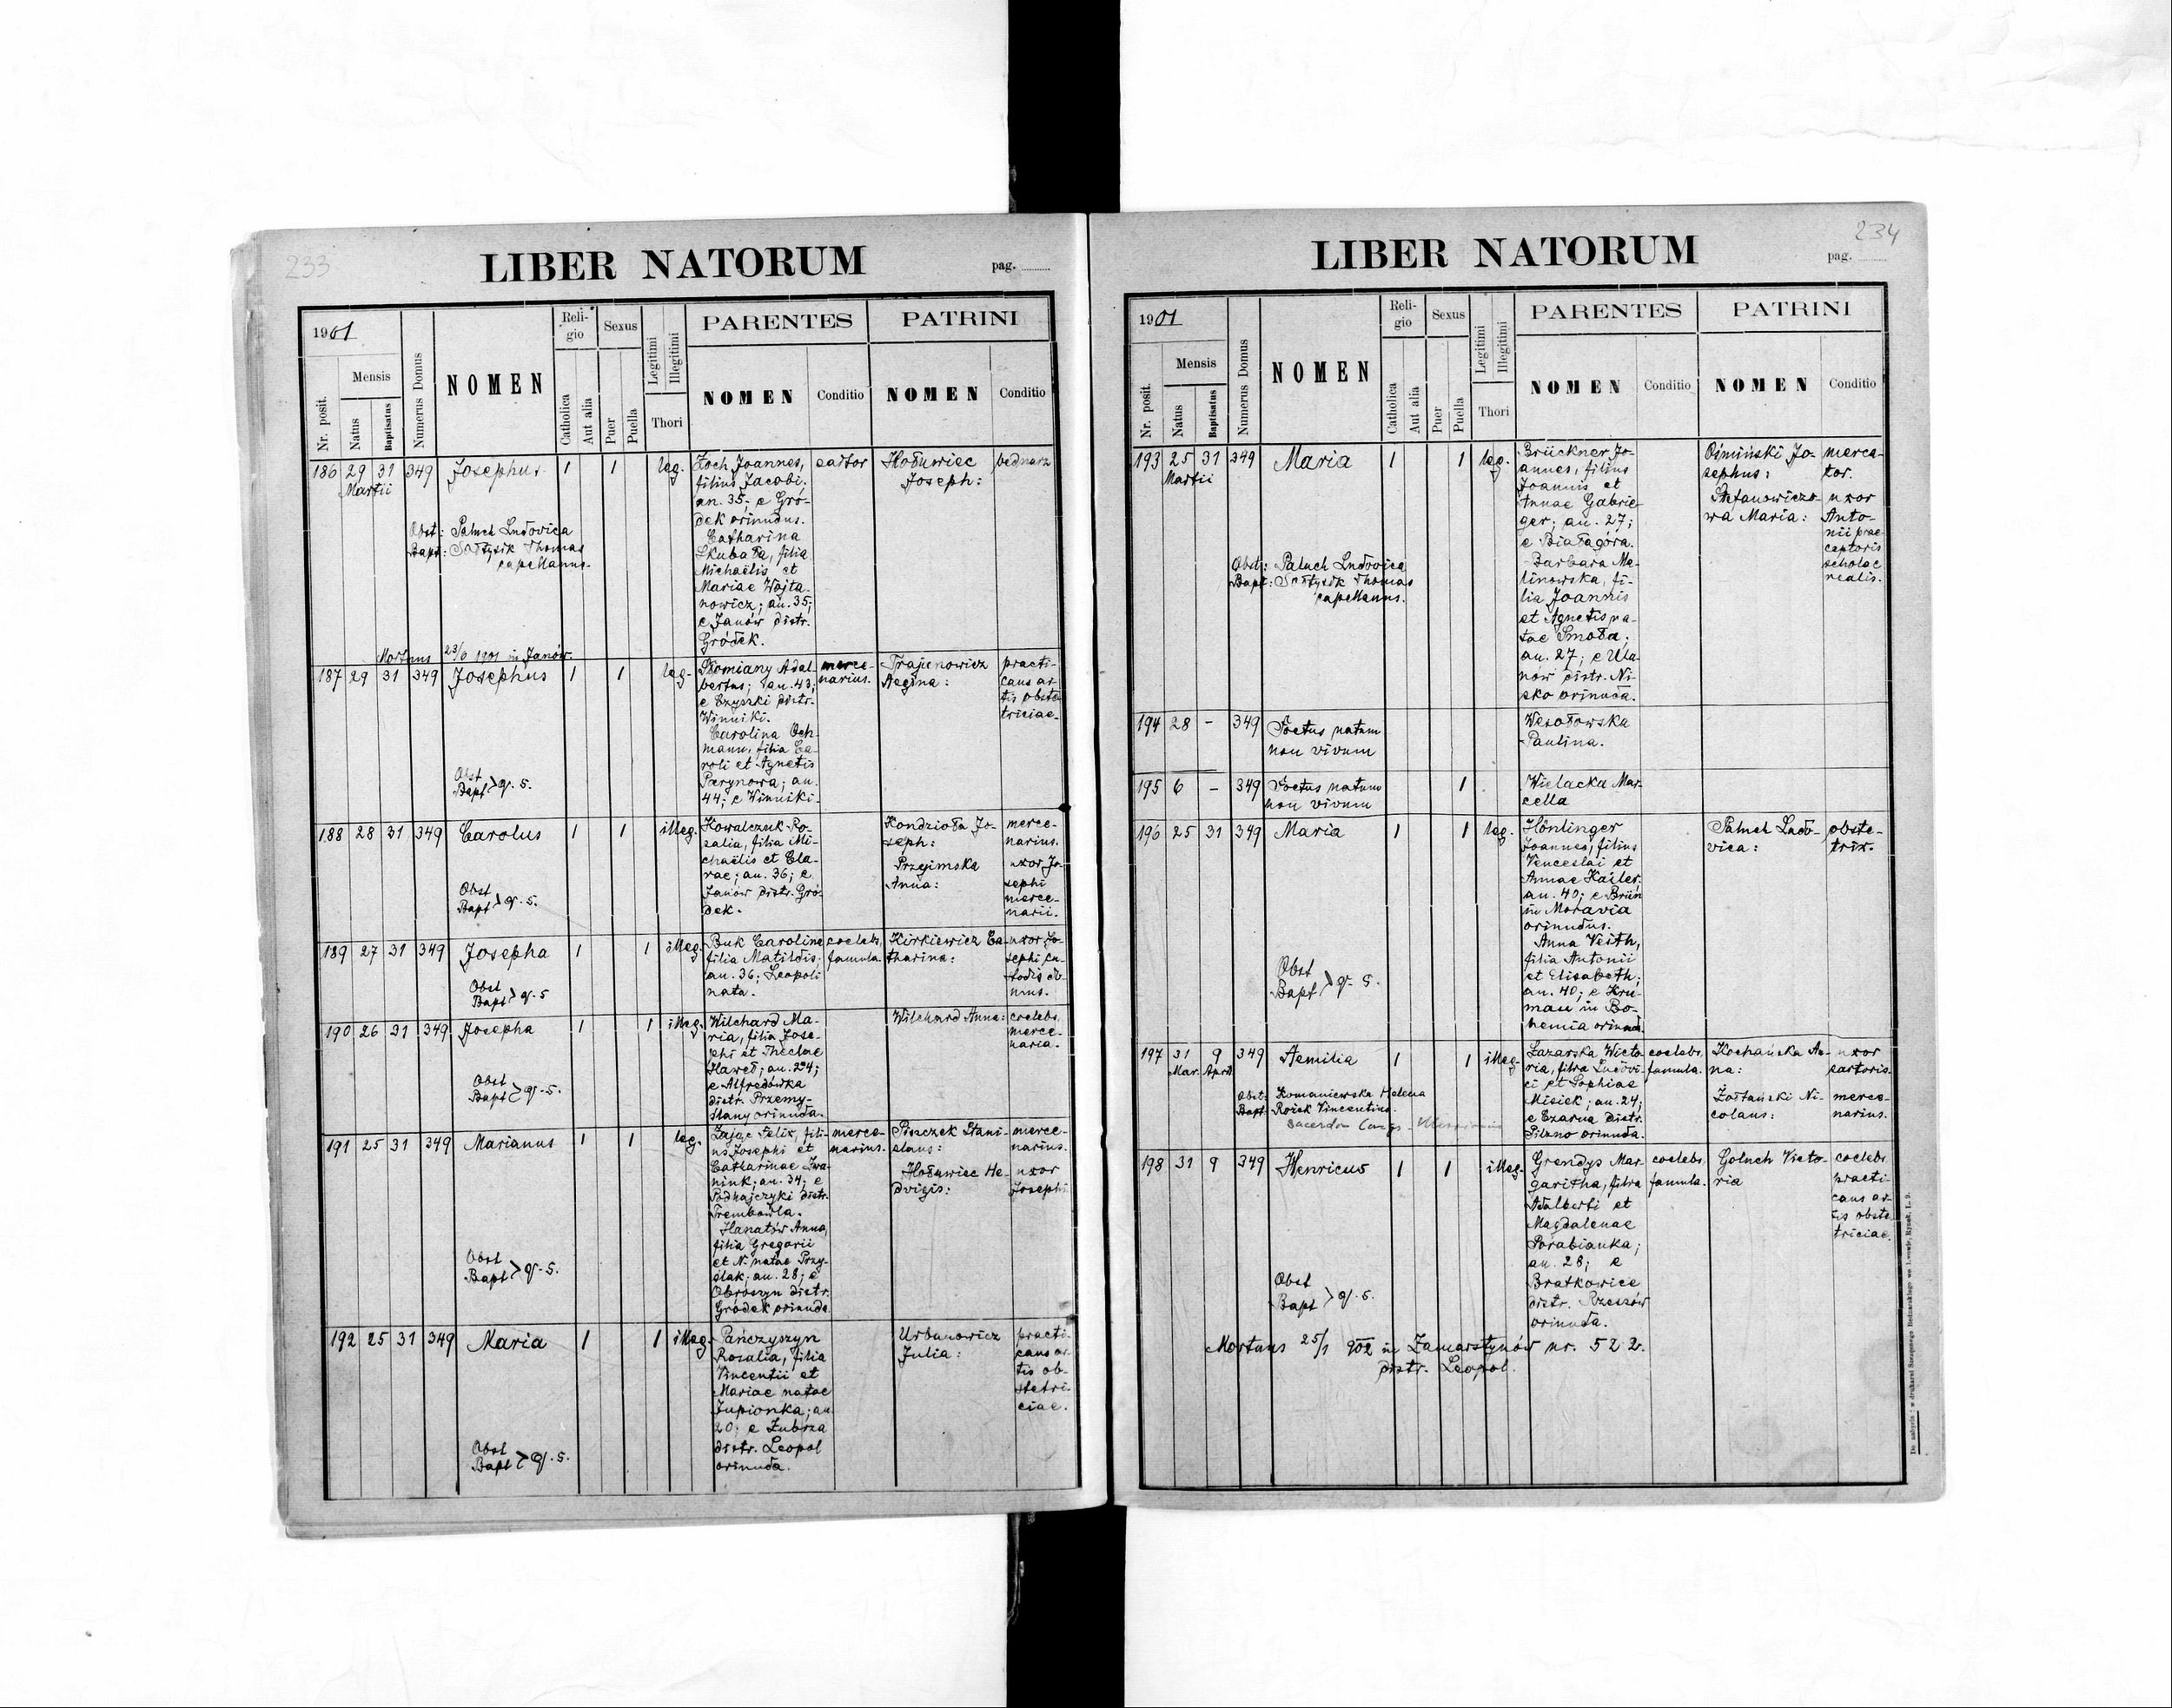 233
LIBER NATORUM
pag.
1901
Nr. posit.
Mensis
Natus
Baptisatus
Numerus Domus
NOMEN
Reli-
gio
Catholica
Aut alia
Sexus
Puer
Puella
Legitimi
Illegitimi
Thori
PARENTES
NOMEN
Conditio
PATRINI
NOMEN
Conditio
186 29 31 349 Josephus 1 1 leg.
Martii
Obst: Paluch Ludovica
Bapt: Sołtysik Thomas
capellanus.
Zoch Joannes,
filius Jacobi,
an. 35; e Gró-
dek oriundus.
Catharina
Skubała, filia
Michaëlis et
Mariae Wojta-
nowicz; an. 35;
e Janów distr.
Gródek.
sartor
Hołuwiec
Joseph:
bednarz
Mortuus 23/6 1901 in Janów.
187 29 31 349 Josephus 1 1 leg.
Obst
Bapt > q. s.
Słomiany Adal-
bertus; an. 43;
e Czyszki distr.
Winniki.
Carolina Och-
mann, filia Ca-
roli et Agnetis
Parynowa; an.
44; e Winniki.
merce-
narius.
Trajenowicz
Regina:
practi-
cans ar-
tis obste-
triciae.
188 28 31 349 Carolus 1 1 illeg.
Obst
Bapt > q. s.
Kowalczuk Ro-
salia, filia Mi-
chaëlis et Cla-
rae; an. 36; e
Janów distr. Gró-
dek.
Kondzioła Jo-
seph:
Przyimska
Anna:
merce-
narius.
uxor Jo-
sephi
merce-
narii.
189 27 31 349 Josepha 1 1 illeg.
Obst
Bapt > q. s
Buk Carolina
filia Matildis;
an. 36; Leopoli
nata.
coelebs,
famula.
Kirkiewicz Ca-
tharina:
uxor Jo-
sephi cu-
stodis do-
mus.
190 26 31 349 Josepha 1 1 illeg.
Obst
Bapt > q. s.
Wilchard Ma-
ria, filia Jose-
phi et Theclae
Haweł; an. 24;
e Alfredówka
distr. Przemy-
ślany oriunda.
Wilchard Anna:
coelebs,
merce-
naria.
191 25 31 349 Marianus 1 1 leg.
Obst
Bapt > q. s.
Zając Felix, fili-
us Josephi et
Catharinae Iwa-
nink; an. 34; e
Podhajczyki distr.
Trembowla.
Hanatów Anna,
filia Gregorii
et N. natae Przy-
ślak; an. 28; e
Obroszyn distr.
Gródek oriunda.
merce-
narius.
Pieczek Stani-
slaus:
Hołuwiec He-
dvigis:
merce-
narius.
uxor
Josephi
192 25 31 349 Maria 1 1 illeg.
Obst
Bapt > q. s.
Pańczyszyn
Rosalia, filia
Vincentii et
Mariae natae
Jupionka; an.
20; e Zubrza
distr. Leopol
oriunda.
Urbanowicz
Julia:
practi-
cans ar-
tis ob-
stetri-
ciae.
234
LIBER NATORUM
pag.
1901
Nr. posit.
Mensis
Natus
Baptisatus
Numerus Domus
NOMEN
Reli-
gio
Catholica
Aut alia
Sexus
Puer
Puella
Legitimi
Illegitimi
Thori
PARENTES
NOMEN
Conditio
PATRINI
NOMEN
Conditio
193 25 31 349 Maria 1 1 leg.
Martii
Obst: Paluch Ludovica
Bapt: Sołtysik Thomas
capellanus.
Brückner Jo-
annes, filius
Joannis et
Annae Gabrie-
ger; an. 27;
e Białagóra.
Barbara Ma-
linowska, fi-
lia Joannis
et Agnetis na-
tae Smoła;
an. 27; e Ula-
nów distr. Ni-
sko oriunda.
Ośmiński Jo-
sephus:
Stefanowiczo-
wa Maria:
merca-
tor.
uxor
Anto-
nii prae-
ceptoris
scholae
realis.
194 28 - 349 Foetus natum
non vivum
Wesołowska
Paulina.
195 6 - 349 Foetus natum 1
non vivum
Wielacka Mar-
cella
196 25 31 349 Maria 1 1 leg.
Obst
Bapt > q. s.
Hönlinger
Joannes, filius
Venceslai et
Annae Käsler,
an. 40; e Brünn
in Moravia
oriundus.
Anna Veith,
filia Antonii
et Elisabeth;
an. 40; e Kru-
mau in Bo-
hemia oriunda
Paluch Ludo-
vica:
obste-
trix.
197 31 9 349 Aemilia 1 1 illeg.
Mar. April
Obst: Romaniewska Helena
Bapt: Rosiek Vincentius.
sacerdos Congr. Missionis
Lazarska Victo-
ria, filia Ludovi-
ci et Sophiae
Misiek; an. 24;
e Czarna distr.
Pilzno oriunda.
coelebs,
famula.
Kochańska An-
na:
Żołtański Ni-
colaus:
uxor
sartoris.
merce-
narius.
198 31 9 349 Henricus 1 1 illeg.
Obst
Bapt > q. s.
Grendys Mar-
garitha, filia
Adalberti et
Magdalenae
Porabianka;
an. 28; e
Bratkowice
distr. Rzeszów
oriunda.
coelebs,
famula.
Goluch Victo-
ria
coelebs,
practi-
cans ar-
tis obste-
triciae.
Mortuus 25/1 902 in Zamarstynów nr. 522.
distr. Leopol.